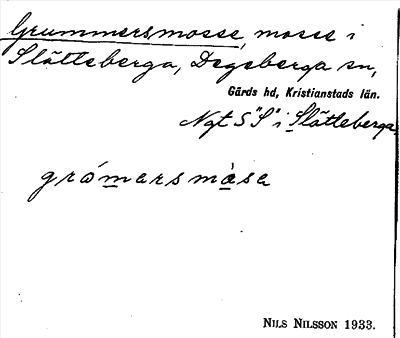 Grummersmosse, mosse i
Slätteberga, Degeberga sn,
Gärds hd, Kristianstads län.
Ngt S "S" i Slätteberga.
grómarsmàsa
NILS NILSSON 1933.